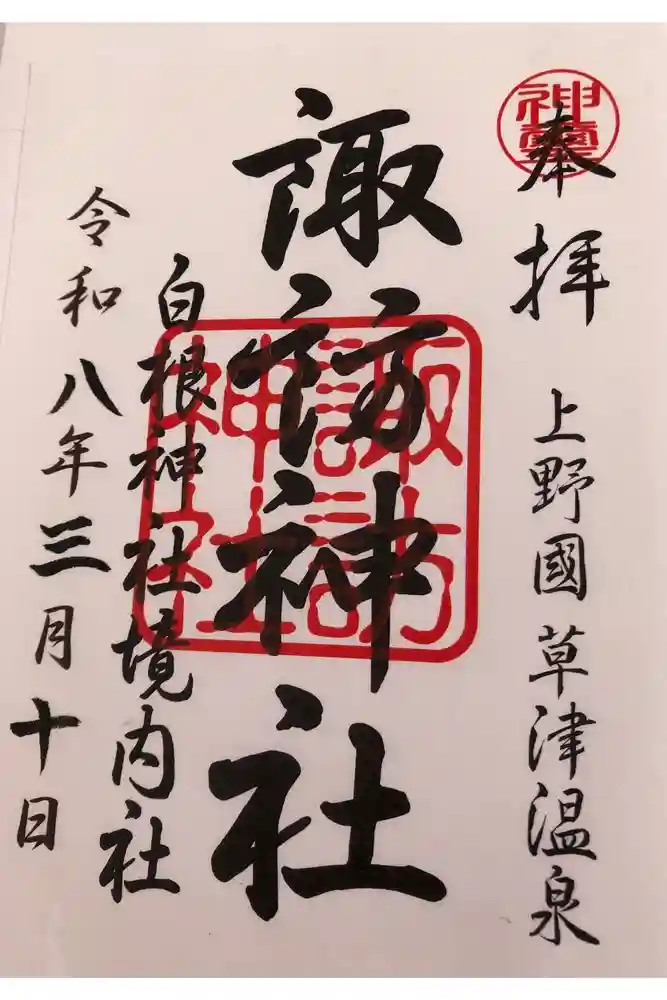 奉拝
上野國草津温泉
諏訪神社
白根神社境内社
令和八年三月十日
諏訪
神社